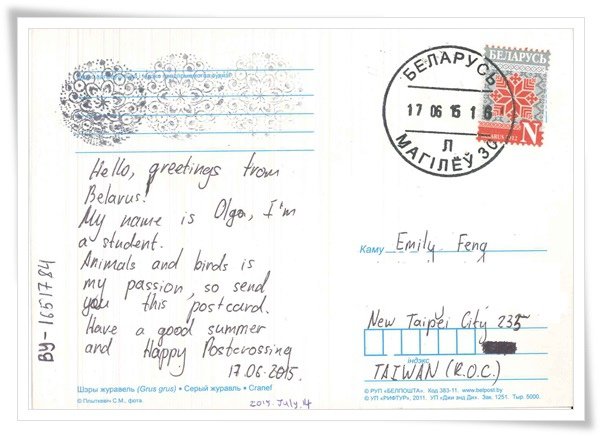 БЕЛАРУСЬ
17 06 15 1 6
Л
МАГІЛЁЎ 30
БЕЛАРУСЬ
N
Hello, greetings from
Belarus!
My name is Olga, I'm
a student.
Animals and birds is
my passion, so send
you this postcard.
Have a good summer
and Happy Postcrossing
17.06.2015.
BY-1651784
Каму Emily Feng
New Taipei City 235
індэкс
TAIWAN (R.O.C.)
Шэры журавель (Grus grus) • Серый журавль • Cranef
© Плыткевич С.М., фота.
2015.July.14
© РУП «БЕЛПОШТА». Код 383-11. www.belpost.by
© УП «РИФТУР», 2011. УП «Дии энд Ди». Зак. 1251. Тыр. 5000.